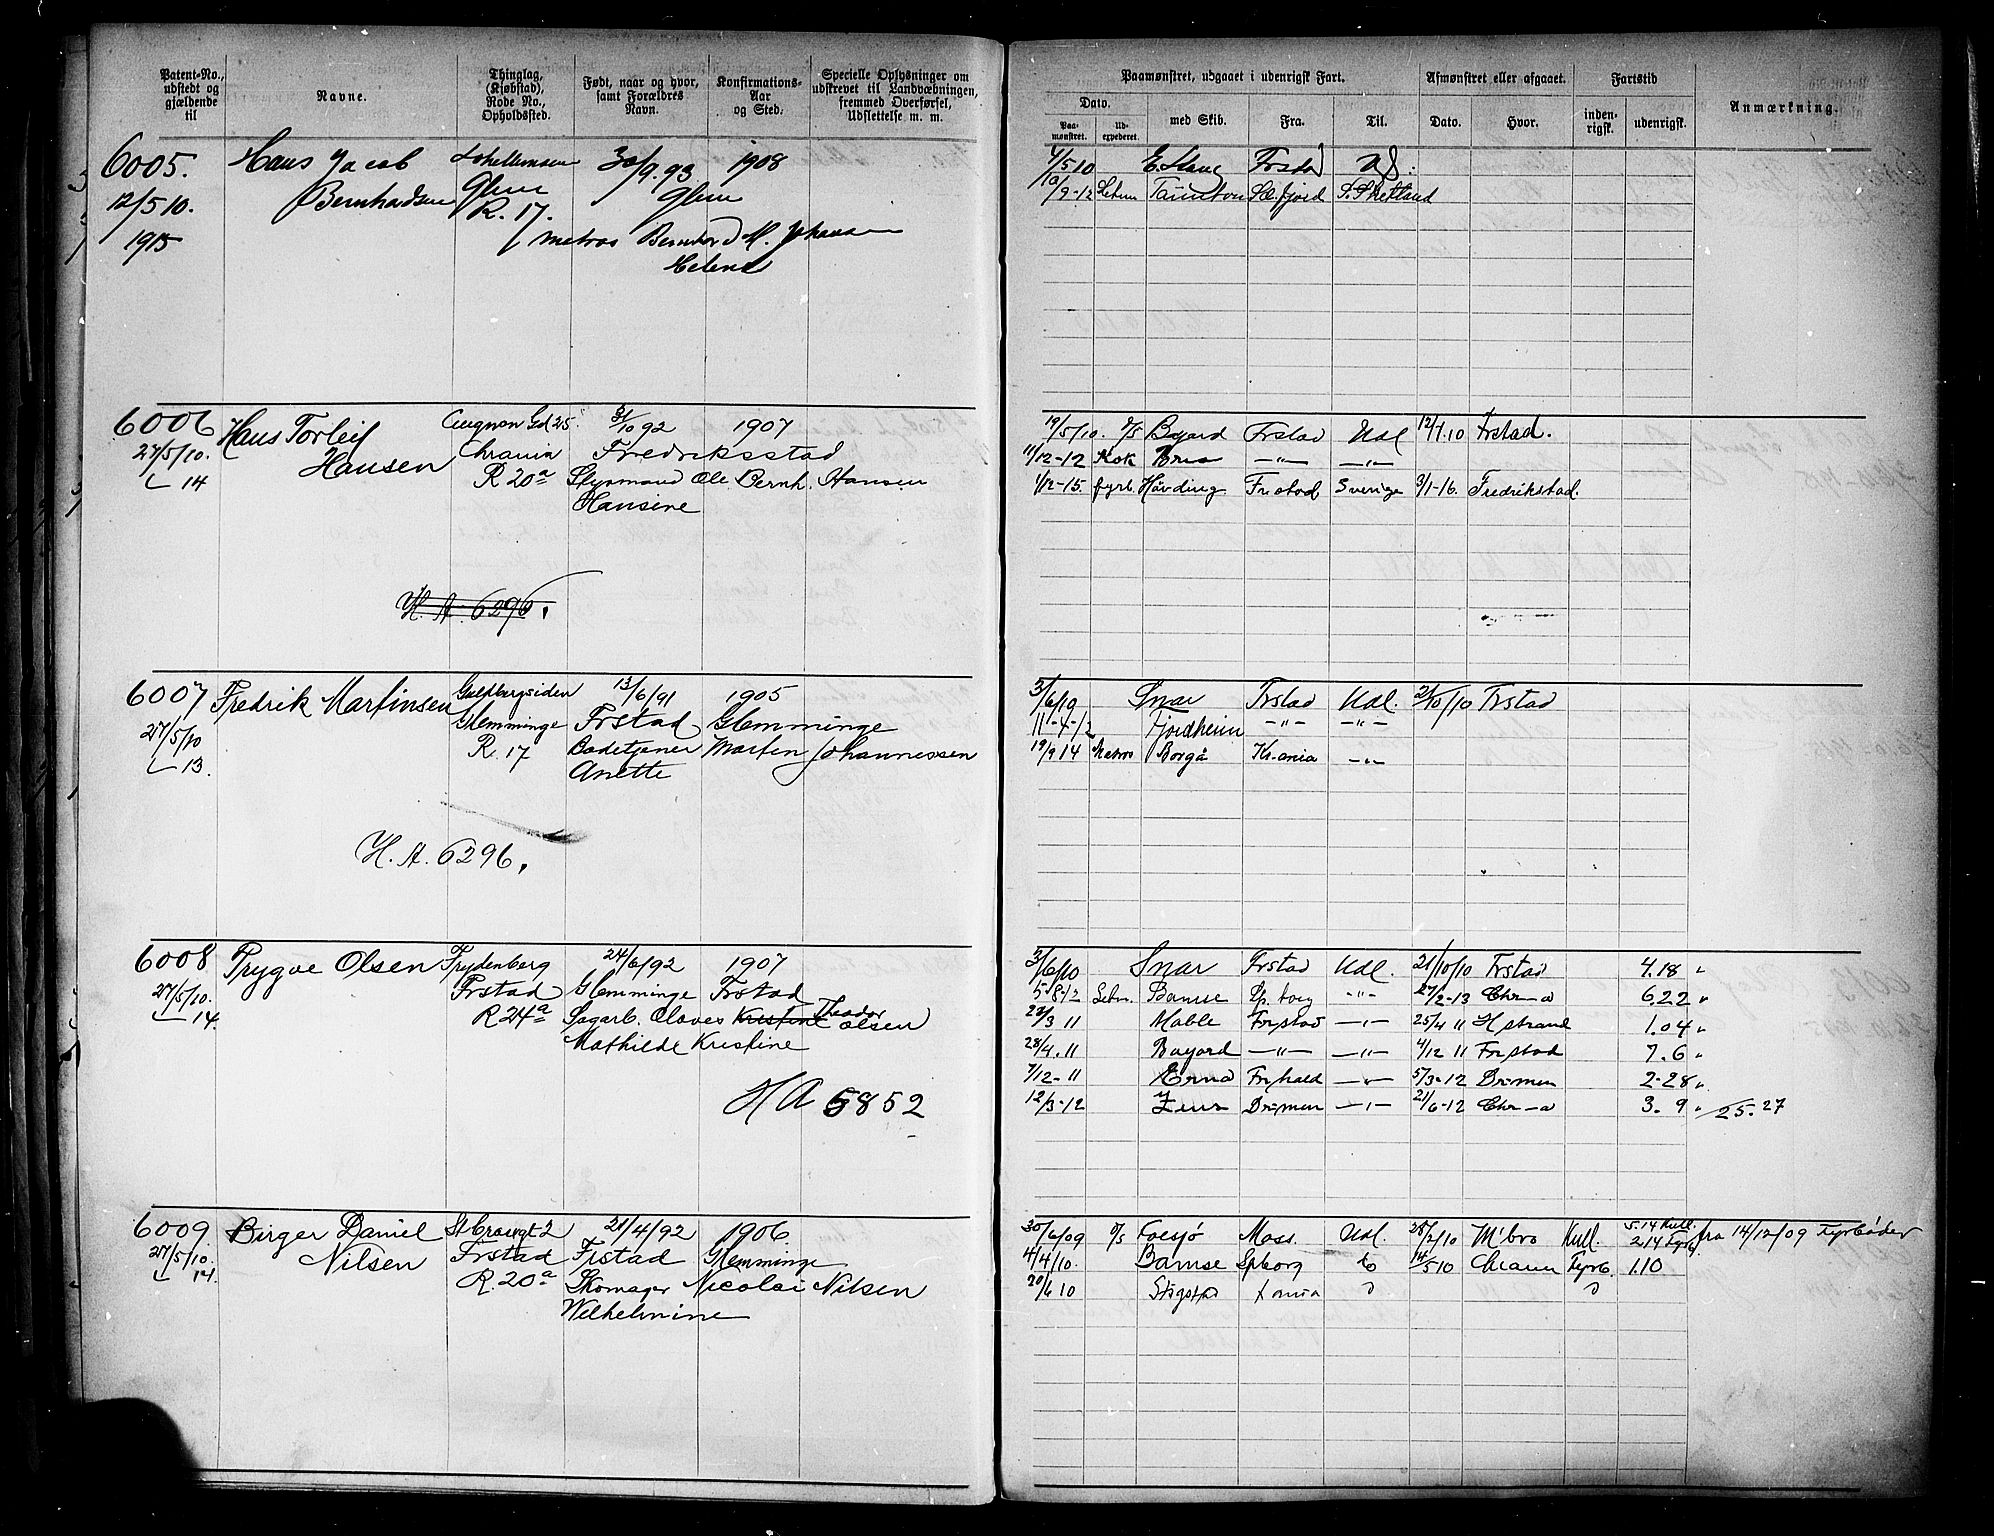 Patent-No., udstedt og gjældende til
Navne.
Thinglag, (Kjøbstad), Rode No., Opholdssted.
Født, naar og hvor, samt Forældres Navn.
Konfirmations-Aar og Sted.
Specielle Oplysninger om udskrevet til Landvæbningen, fremmed Overførsel, Udslettelse m. m.
Paamønstret, udgaaet i udenrigsk Fart.
Afmønstret eller afgaaet.
Fartstid
Anmærkning.
Dato.
Paa-mønstret.
Ud-expederet.
med Skib.
Fra.
Til.
Dato.
Hvor.
inden-rigsk.
udenrigsk.
6005. Hans Jacob 30/9.93 1908
12/510. Bernhardsen Glem Glem
R. 17.
1915 Matros Bernhard M. Johansen
Helene
4/510 E. Stang Frstad
10/9-12 Letm Taunton S. Shetland
6006 Hans Torleif 25 31/10 92 1907
27/5/10. Hansen Chrania Fredriksstad
14 R 20a Styrmand Ole Bernh. Hansen
Hansine
H. A. 6296.
19/5/10. Bayard Frstad Udl 12/7.10 Frstad.
11/12-12 Kok -"- -"-
1/12-15. fyrb. Hövding Frstad Sverige 3/1-16. Fredrikstad.
6007 Fredrik Martinsen Guldbergsiden 13/6/91 1905
27/5/10 Glemminge Frstad Glemminge
13. R. 17 Badetjener Martin Johannessen
Anette
H. A. 6296.
3/6/19 Snar Frstad Udl. 21/10/10 Frstad
11-4-12 Fjordheim -"- -"-
19/9 14 Matros Borgå Kr.ania -"-
6008 Trygve Olsen Frydenberg 24/6/92 1907
27/5/10. Frstad Glemminge Frstad
14. R 24a Sagarb. Olaves Kristine Theodor Olsen
Mathilde Kristine
HA 5852
3/6/10 Snar Frstad Udl. 21/10/10 Frstad 4.18 "
5-8-12 Letm. Bamse Sp.borg -"- 27/2-13 Chr-a 6.22 "
22/3 11 Mable Frstad -"- 25/4 11 Hstrand 1.04 "
28/4.11 Bayard -"- -"- 4/12 11 Frstad 7.6 "
7/12-11 Erna Frhald -"- 5/3-12 Drmen 2-28 "
12/3-12 Zeus Drmen -"- 21/6-12 Chr-a 3.9 " 25.27
6009. Birger Daniel St Croixgt 2 21/4/92 1906
27/5/10. Nilsen Frstad Frstad Glemminge
14. R. 20a Skomager Nicolai Nilsen
Wilhelmine
30/6/09 D/S Moss Udl. 28/2/10 M'bro Kull. 5.14 Kull. 2.14 Fyrb fra 14/12/09 Fyrbøder
4/4/10. Bamse Spborg 14/510 Chrania Fyrb. 1.10
20/6 10